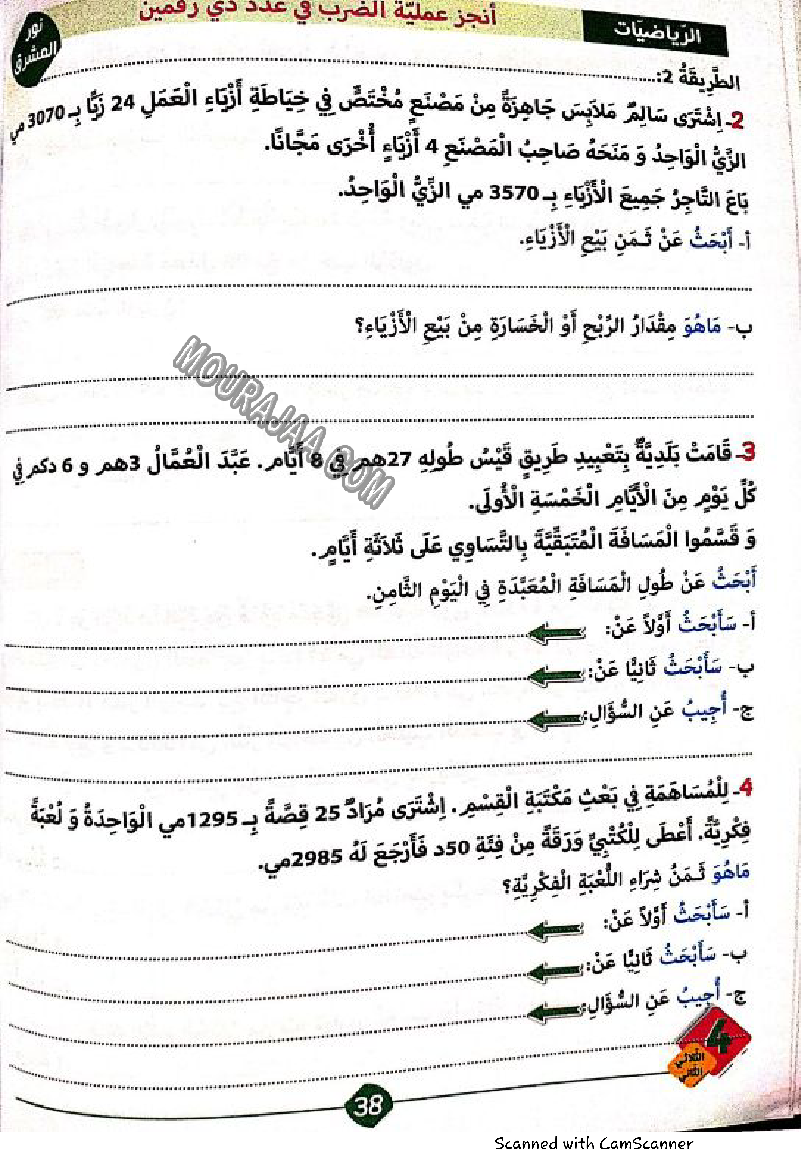 أنجز عمليّة الضرب في عدد ذي رقمين
الرّياضيّات
نور المشرق
الطَّرِيقَةُ 2:
2- اِشْتَرَى سَالِمٌ مَلَابِسَ جَاهِزَةً مِنْ مَصْنَعٍ مُخْتَصٍّ فِي خِيَاطَةِ أَزْيَاءِ الْعَمَلِ 24 زَيًّا بِـ 3070 مي
الزَّيُّ الْوَاحِدُ وَ مَنَحَهُ صَاحِبُ الْمَصْنَعِ 4 أَزْيَاءٍ أُخْرَى مَجَّانًا.
بَاعَ التَّاجِرُ جَمِيعَ الْأَزْيَاءِ بِـ 3570 مي الزِّيُّ الْوَاحِدُ.
أ- أَبْحَثُ عَنْ ثَمَنِ بَيْعِ الْأَزْيَاءِ.
ب- مَاهُوَ مِقْدَارُ الرِّبْحِ أَوْ الْخَسَارَةِ مِنْ بَيْعِ الْأَزْيَاءِ؟
MOURAJAA.COM
3- قَامَتْ بَلَدِيَّةٌ بِتَعْبِيدِ طَرِيقٍ قَيْسُ طُولِهِ 27هم فِي 8 أَيَّامٍ. عَبَّدَ الْعُمَّالُ 3هم و 6 دكم فِي
كُلِّ يَوْمٍ مِنَ الْأَيَّامِ الْخَمْسَةِ الْأُولَى.
وَ قَسَّمُوا الْمَسَافَةَ الْمُتَبَقِّيَّةَ بِالتَّسَاوِي عَلَى ثَلَاثَةِ أَيَّامٍ.
أَبْحَثُ عَنْ طُولِ الْمَسَافَةِ الْمُعَبَّدَةِ فِي الْيَوْمِ الثَّامِنِ.
أ- سَأَبْحَثُ أَوَّلاً عَنْ:
ب- سَأَبْحَثُ ثَانِيًّا عَنْ:
ج- أُجِيبُ عَنِ السُّؤَالِ:
4- لِلْمُسَاهَمَةِ فِي بَعْثِ مَكْتَبَةِ الْقِسْمِ. اِشْتَرَى مُرَادٌ 25 قِصَّةً بِـ 1295مي الْوَاحِدَةُ وَ لُعْبَةً
فِكْرِيَّةً. أَعْطَى لِلْكُتْبِيِّ وَرَقَةً مِنْ فِئَةِ 50د فَأَرْجَعَ لَهُ 2985مي.
مَاهُوَ ثَمَنُ شِرَاءِ اللُّعْبَةِ الْفِكْرِيَّةِ؟
أ- سَأَبْحَثُ أَوَّلاً عَنْ:
ب- سَأَبْحَثُ ثَانِيًّا عَنْ:
ج- أُجِيبُ عَنِ السُّؤَالِ:
4
الثلاثي الثاني
38
Scanned with CamScanner